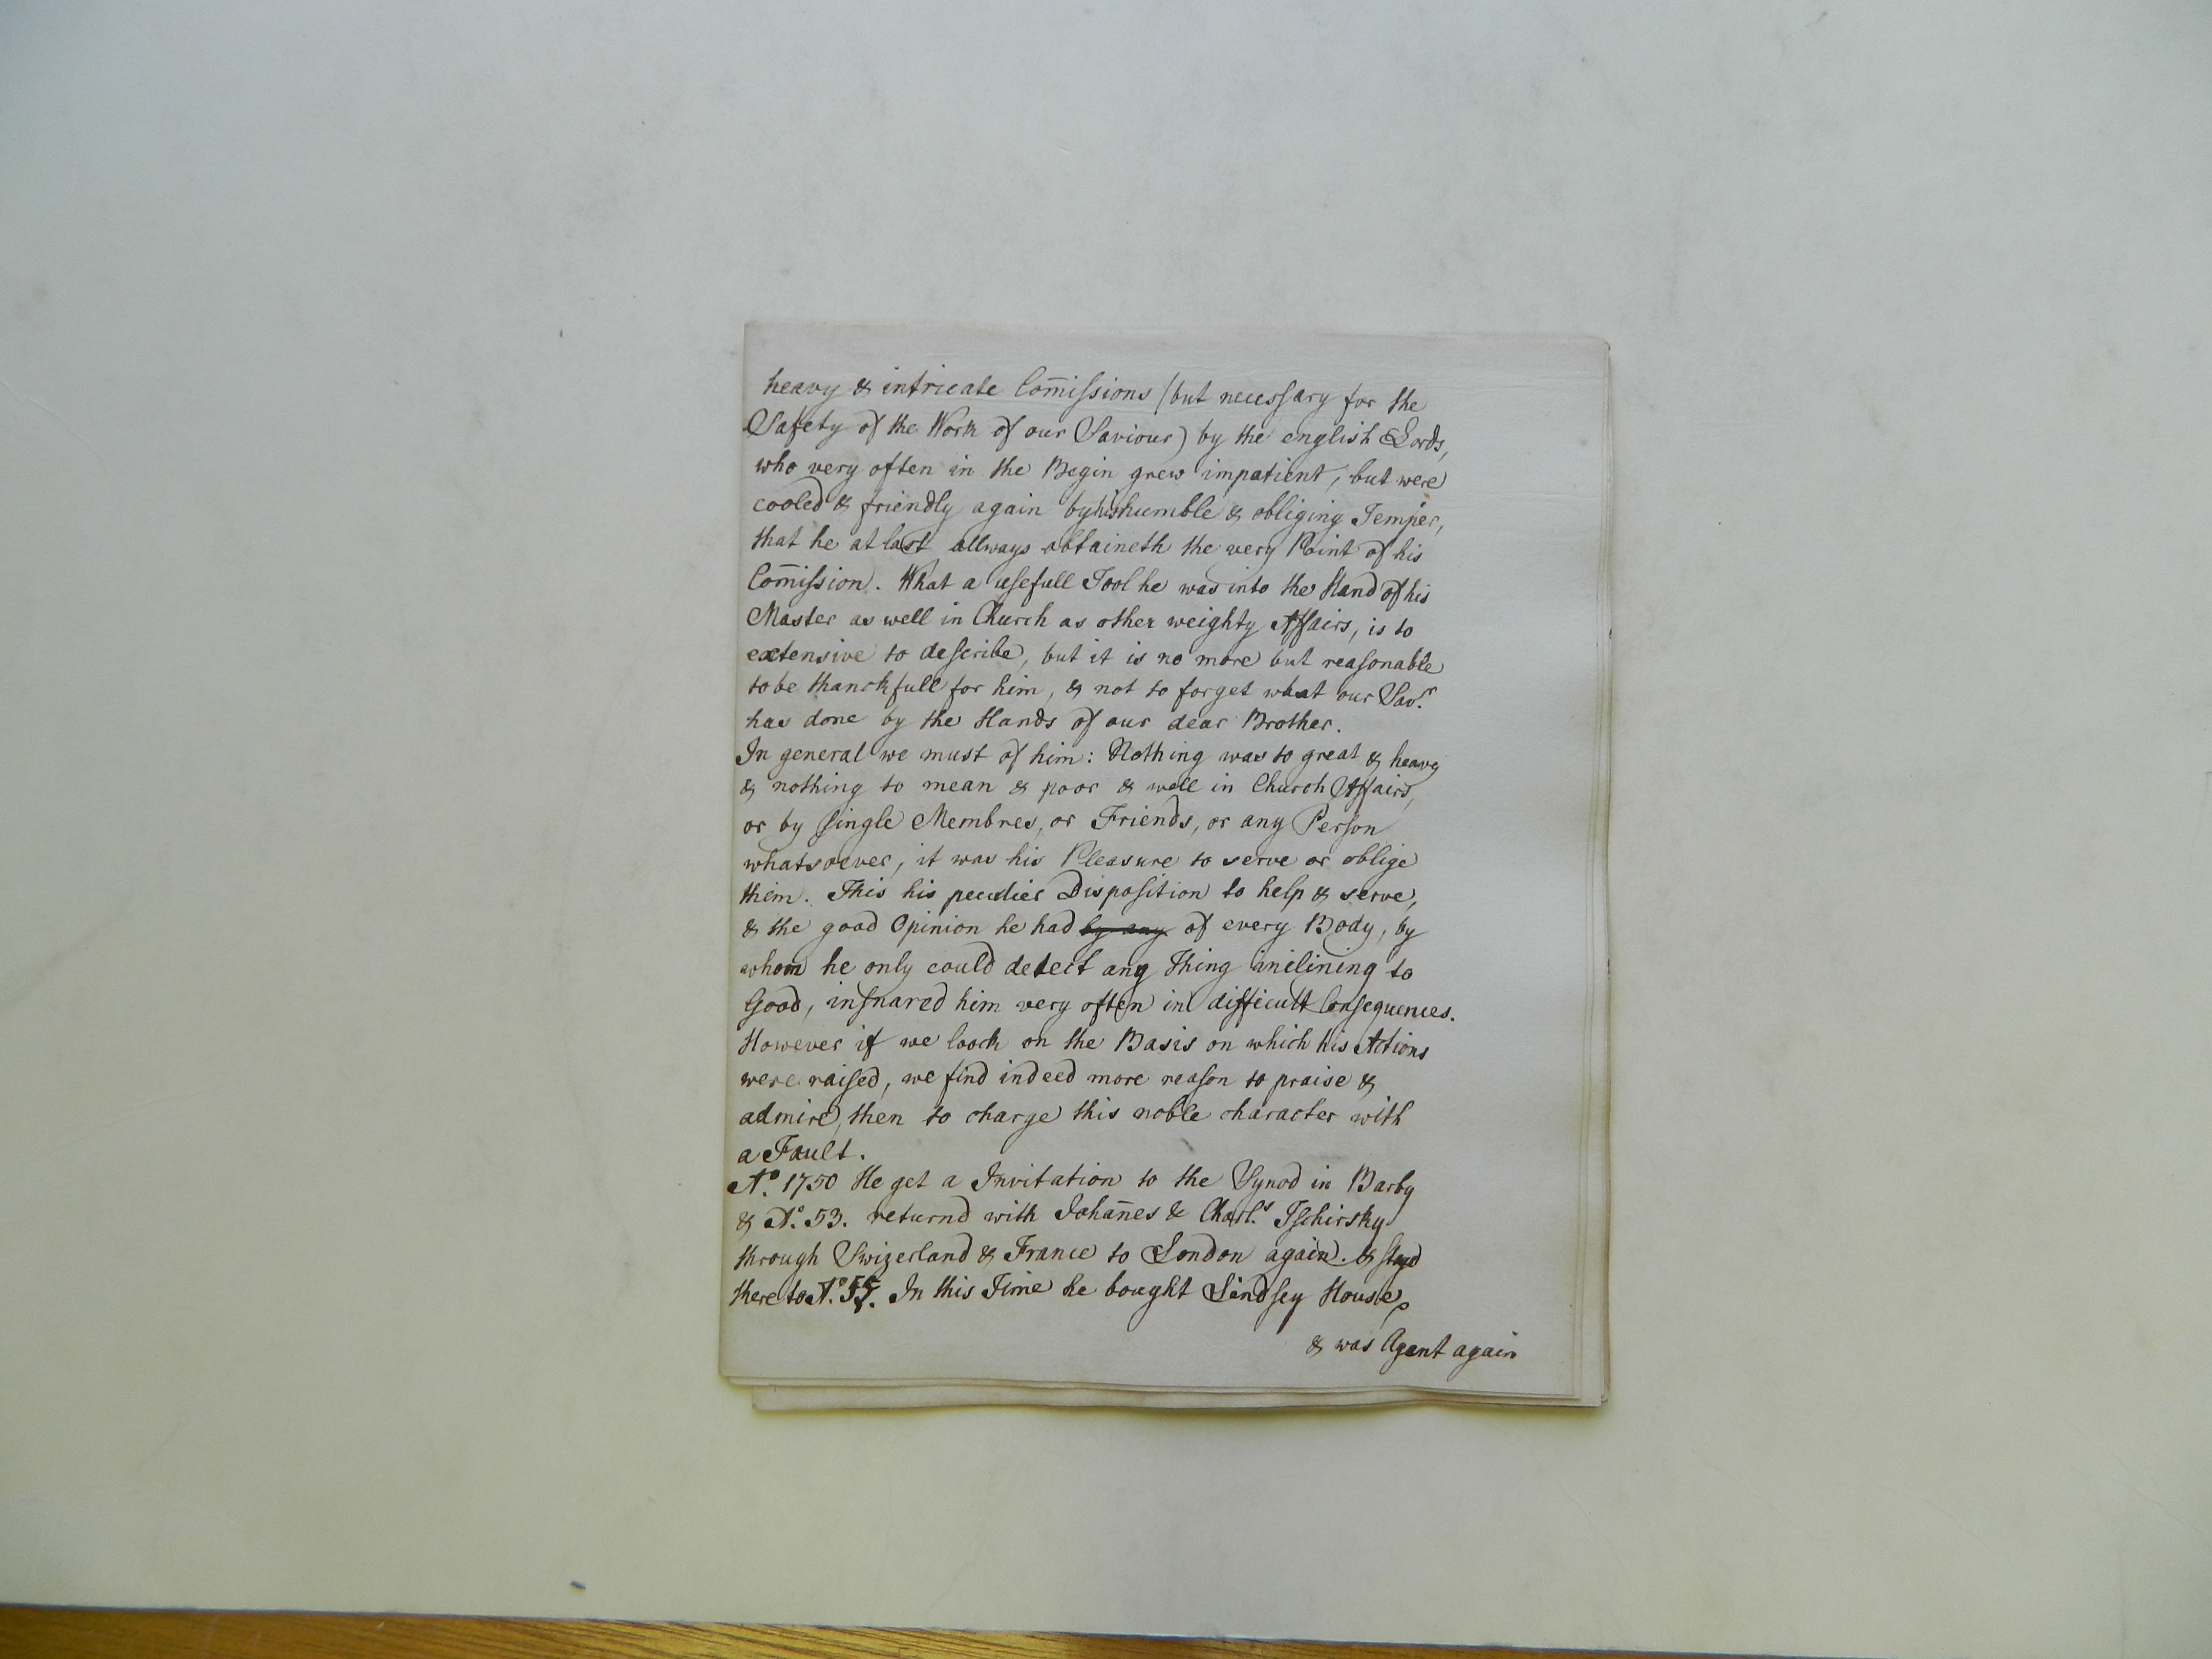 heavy & intricate Com̄issions (but necessary for the
Safety of the Work of our Saviour) by the english Lords,
who very often in the Begin grew impatient, but were
cooled & friendly again by his humble & obliging Temper,
that he at last allways obtaineth the very Point of his
Com̄ission. What a usefull Tool he was into the Hand of his
Master as well in Church as other weighty Affairs, is to
extensive to describe, but it is no more but reasonable
to be thanckfull for him, & not to forget what our Sav.r
has done by the Hands of our dear Brother.
In general we must of him: Nothing was to great & heavy
& nothing to mean & poor & well in Church Affairs,
or by single Membres, or Friends, or any Person
whatsoever, it was his Pleasure to serve or oblige
them. This his peculier Disposition to help & serve,
& the good Opinion he had by any of every Body, by
whom he only could detect any Thing inclining to
Good, insnared him very often in difficult Consequences.
However if we loock on the Basis on which his Actions
were raised, we find indeed more reason to praise &
admire, then to charge this noble character with
a Fault.
A.o 1750 He get a Invitation to the Synod in Barby
& A.o 53. returnd with Johan̄es & Charl.s Tschirsky
through Swizerland & France to London again. & stayd
there to A.o 55. In this Time he bought Lindsey House,
& was Agent again